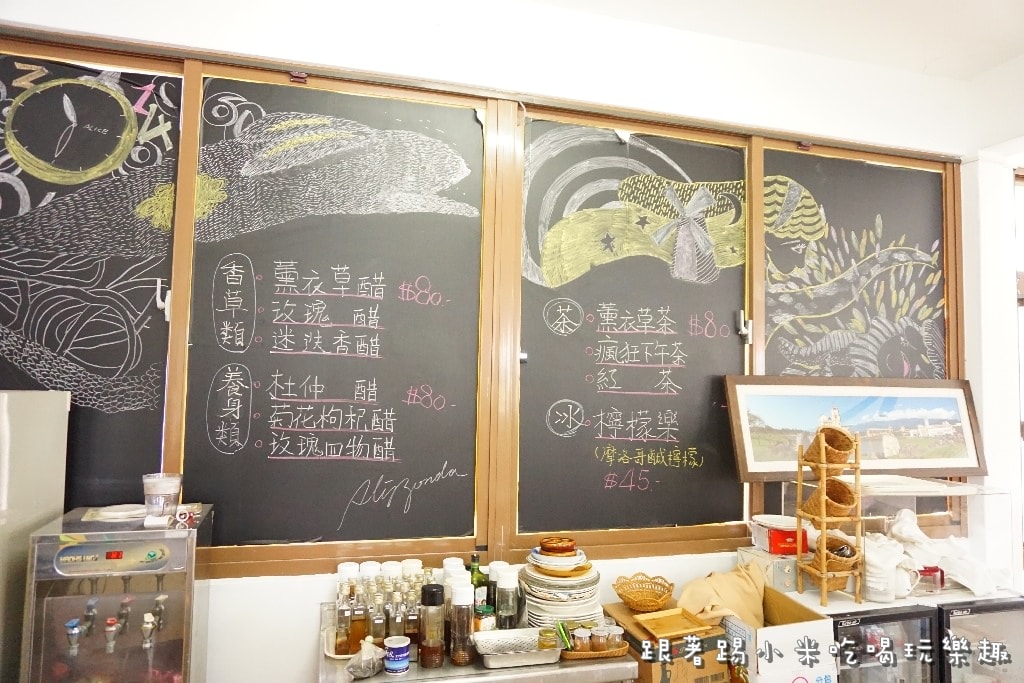 ALICE
香草類
薰衣草醋 $80.-
玫瑰 醋
迷迭香醋
養身類
杜仲 醋 $80.-
菊花枸杞醋
玫瑰四物醋
茶
薰衣草茶 $80.-
瘋狂下午茶
紅 茶
冰
檸檬樂
(摩洛哥鹹檸檬)
$45.-
跟著踢小米吃喝玩樂趣